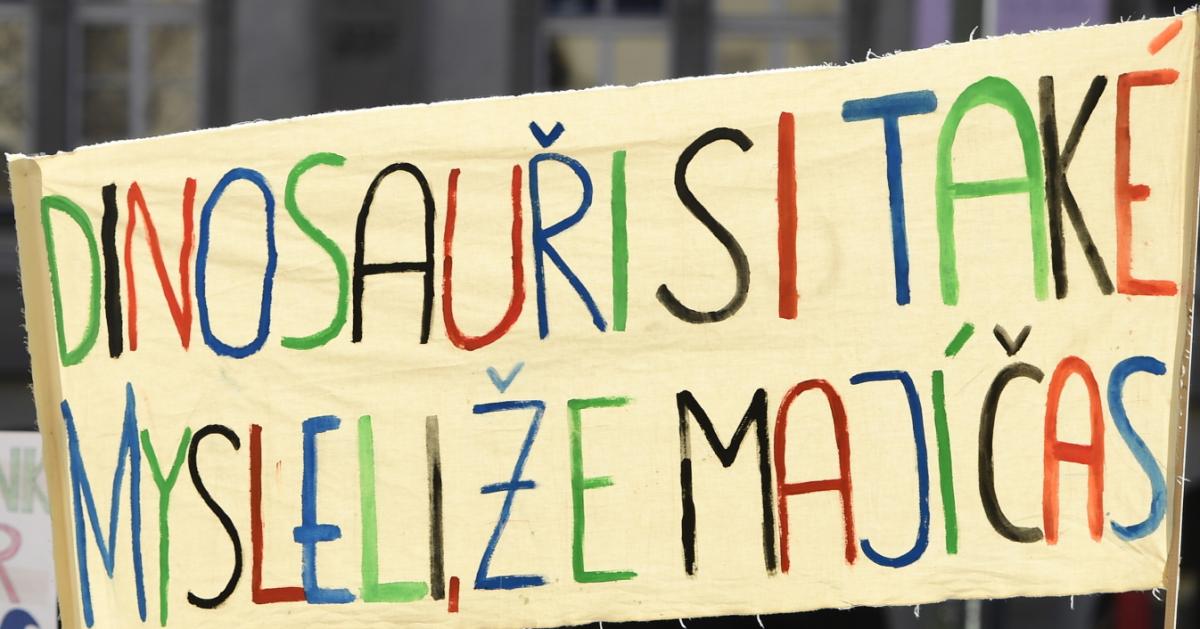 DINOSAUŘI SI TAKÉ
MYSLELI, ŽE MAJÍ ČAS
NK
R